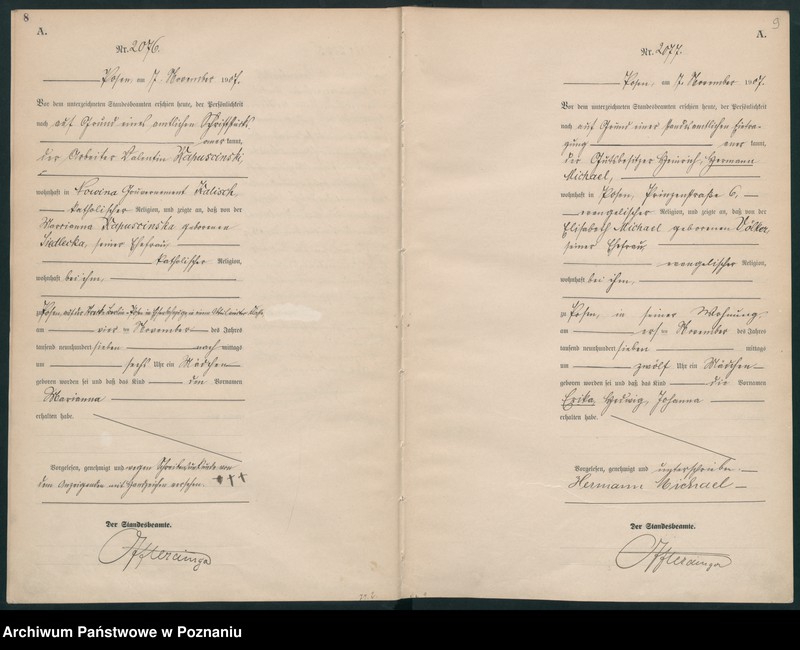 8
A.
Nr. 2076.
Posen, am 7. November 1907.
Vor dem unterzeichneten Standesbeamten erschien heute, der Persönlichkeit
nach auf Grund eines amtlichen Schriftstücks
kannt,
der Arbeiter Valentin Kapuscinski
wohnhaft in Gouvernement Kalisch,
katholischer Religion, und zeigte an, daß von der
Marianna Kapuscinska geborenen
Siedlecka, seiner Ehefrau,
katholischer Religion,
wohnhaft bei ihm,
zu Posen, auf der
am vier November des Jahres
tausend neunhundert sieben nach mittags
um sechs Uhr ein Mädchen
geboren worden sei und daß das Kind den Vornamen
Marianna
erhalten habe.
Vorgelesen, genehmigt und wegen von
dem Anzeigenden mit Handzeichen versehen. +++
Der Standesbeamte.
9
A.
Nr. 2077.
Posen, am 7. November 1907.
Vor dem unterzeichneten Standesbeamten erschien heute, der Persönlichkeit
nach auf Grund einer standesamtlichen Eintra-
gung kannt,
der Gutsbesitzer Heinrich Hermann
Michael,
wohnhaft in Posen, Prinzenstraße 6,
evangelischer Religion, und zeigte an, daß von der
Elisabeth Michael geborenen Völker
seiner Ehefrau,
evangelischer Religion,
wohnhaft bei ihm,
zu Posen, in seiner Wohnung,
am November des Jahres
tausend neunhundert sieben mittags
um zwölf Uhr ein Mädchen
geboren worden sei und daß das Kind die Vornamen
Erika Hedwig Johanna
erhalten habe.
Vorgelesen, genehmigt und unterschrieben.
Hermann Michael
Der Standesbeamte.
Archiwum Państwowe w Poznaniu